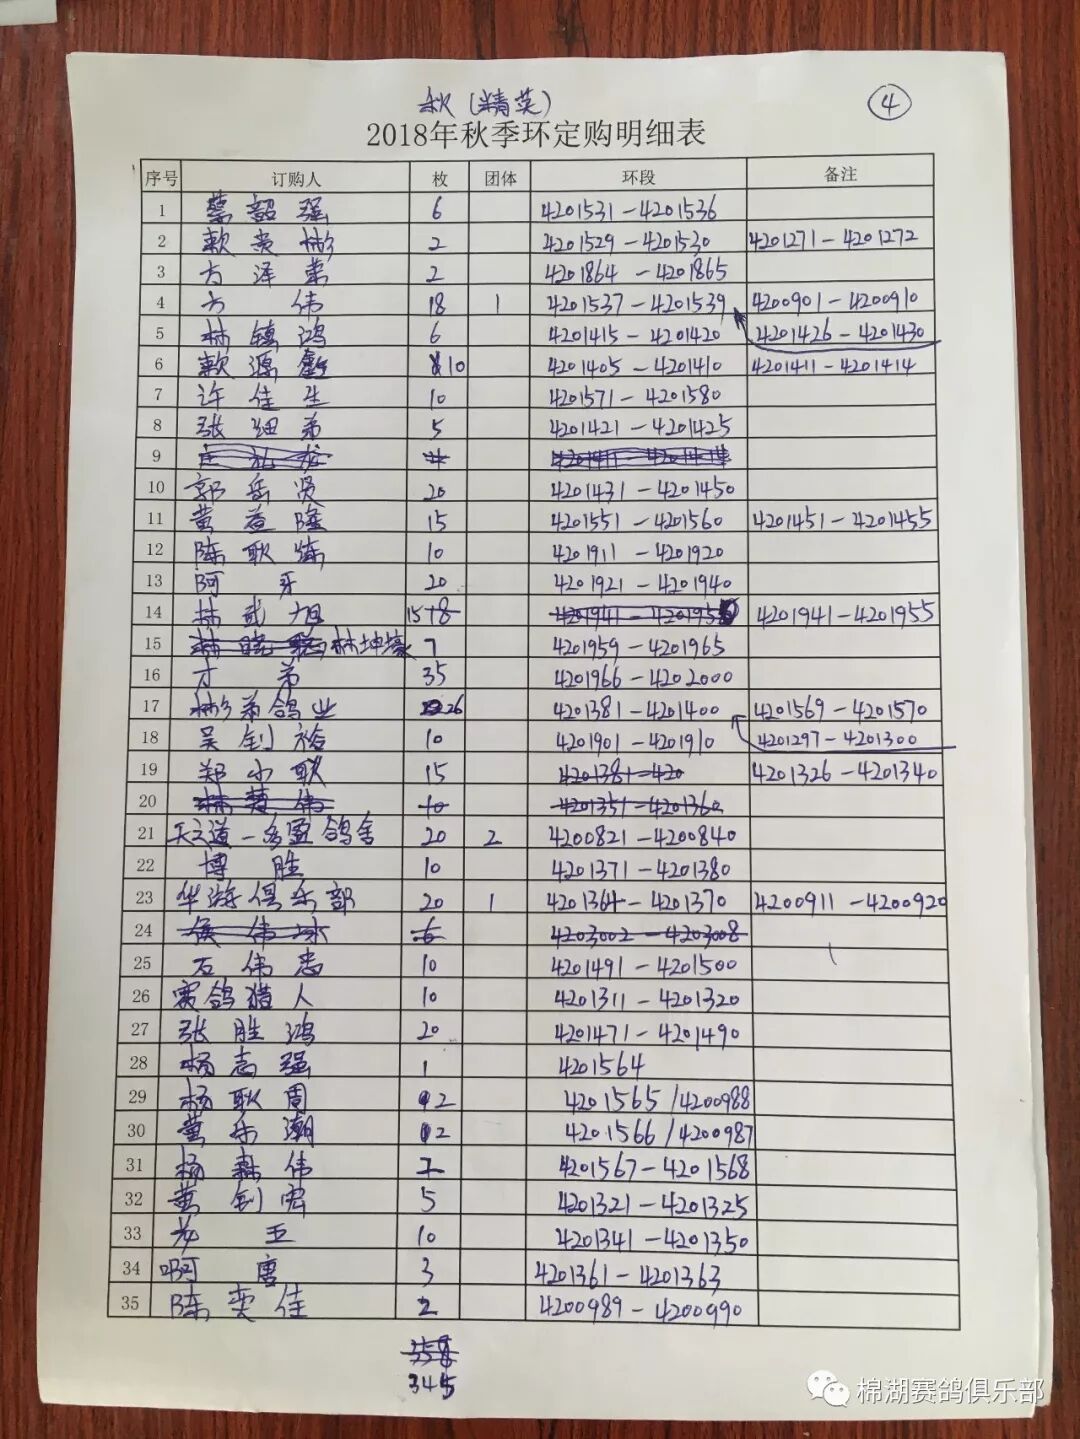 秋(精英)
④
2018年秋季环定购明细表
序号 订购人 枚 团体 环段 备注
1 蔡韶强 6 4201531-4201536
2 贵彬 2 4201529-4201530 4201271-4201272
3 方泽 2 4201864-4201865
4 方伟 18 1 4201537-4201539 4200901-4200910
4201426-4201430
5 林镇鸿 6 4201415-4201420
6 源 10 4201405-4201410 4201411-4201414
7 许佳生 10 4201571-4201580
8 张细弟 5 4201421-4201425
9 4201411-4201414
10 郭岳贤 20 4201431-4201450
11 黄益隆 15 4201551-4201560 4201451-4201455
12 陈耿炼 10 4201911-4201920
13 阿牙 20 4201921-4201940
14 林武旭 15 4201941-4201955
15 林坤壕 7 4201959-4201965
16 才弟 35 4201966-4202000
17 彬弟鸽业 26 4201381-4201400 4201569-4201570
4201297-4201300
18 吴钊裕 10 4201901-4201910
19 郑小耿 15 4201381-420 4201326-4201340
20 10 4201351-4201360
21 天之道-多盈鸽舍 20 2 4200821-4200840
22 博胜 10 4201371-4201380
23 华游俱乐部 20 1 4201364-4201370 4200911-4200920
24 侯伟冰 6 4203002-4203008
25 石伟忠 10 4201491-4201500
26 赛鸽猎人 10 4201311-4201320
27 张胜鸿 20 4201471-4201490
28 杨志强 1 4201564
29 杨耿周 2 4201565/4200988
30 黄乐潮 2 4201566/4200987
31 杨森伟 2 4201567-4201568
32 黄钊宏 5 4201321-4201325
33 王 10 4201341-4201350
34 啊唐 3 4201361-4201363
35 陈奕佳 2 4200989-4200990
358
345
棉湖赛鸽俱乐部